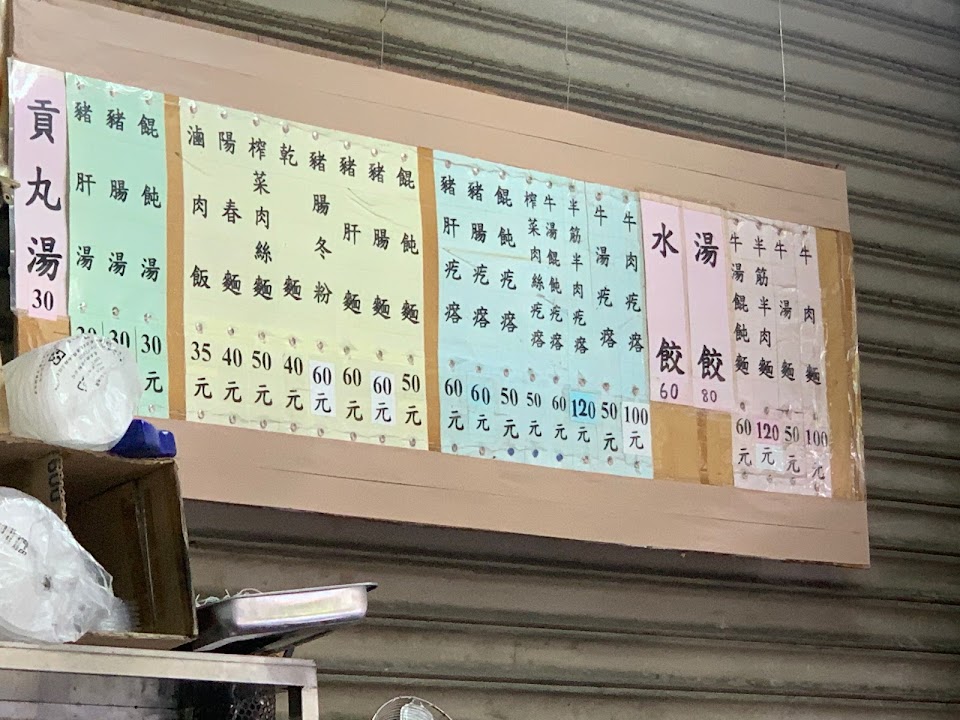 牛肉麵 100元
牛湯麵 50元
半筋半肉麵 120元
牛湯餛飩麵 60元
湯餃 80
水餃 60
牛肉疙瘩 100元
牛湯疙瘩 50元
半筋半肉疙瘩 120元
牛湯餛飩疙瘩 60元
榨菜肉絲疙瘩 50元
餛飩疙瘩 50元
豬腸疙瘩 60元
豬肝疙瘩 60元
餛飩麵 50元
豬腸麵 60元
豬肝麵 60元
豬腸冬粉 60元
乾麵 40元
榨菜肉絲麵 50元
陽春麵 40元
滷肉飯 35元
餛飩湯 30元
豬腸湯 30
豬肝湯
貢丸湯 30